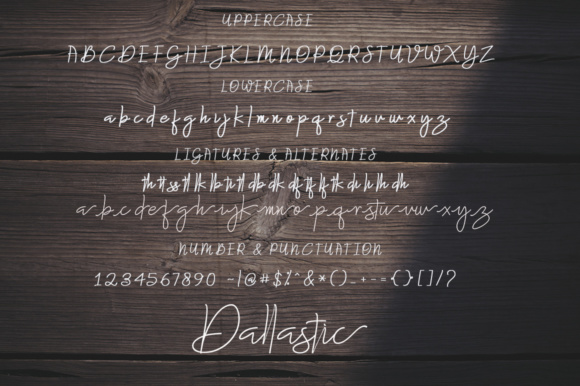 UPPERCASE
ABCDEFGHIJKLMNOPQRSTUVWXYZ
LOWERCASE
abcdefghijklmnopqrstuvwxyz
LIGATURES & ALTERNATES
a b c d e f g h i j k l m n o p q r s t u v w x y z
NUMBER & PUNCTUATION
1234567890 -|@#$%^&*()_+-={}[]/?
Dallastic